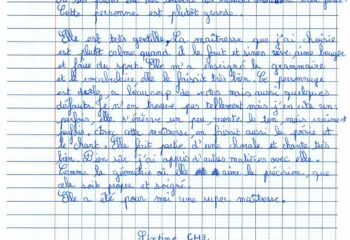 Cette personne est plutôt grande.
Elle est très gentille. La maîtresse que j'ai choisie
est plutôt calme quand il le faut et sinon rêve, aime bouger
et faire du sport. Elle m'a enseigné la grammaire
et le vocabulaire, elle le faisait très bien. Ce personnage
est de a beaucoup de vertus mais aussi quelques
défauts. Je n'en trouve pas tellement mais j'en cite un
parfois, elle s'énerve un peu, monte le ton mais vraiment
parfois. Avec cette maîtresse, on faisait aussi la poésie et
le chant. Elle fait partie d'une chorale et chante très
bien. Bien sûr j'ai appris d'autres matières avec elle.
Comme la géométrie où elle aime la précision, que
cela soit propre et soigné.
Elle a été pour moi une super maîtresse.
CM2